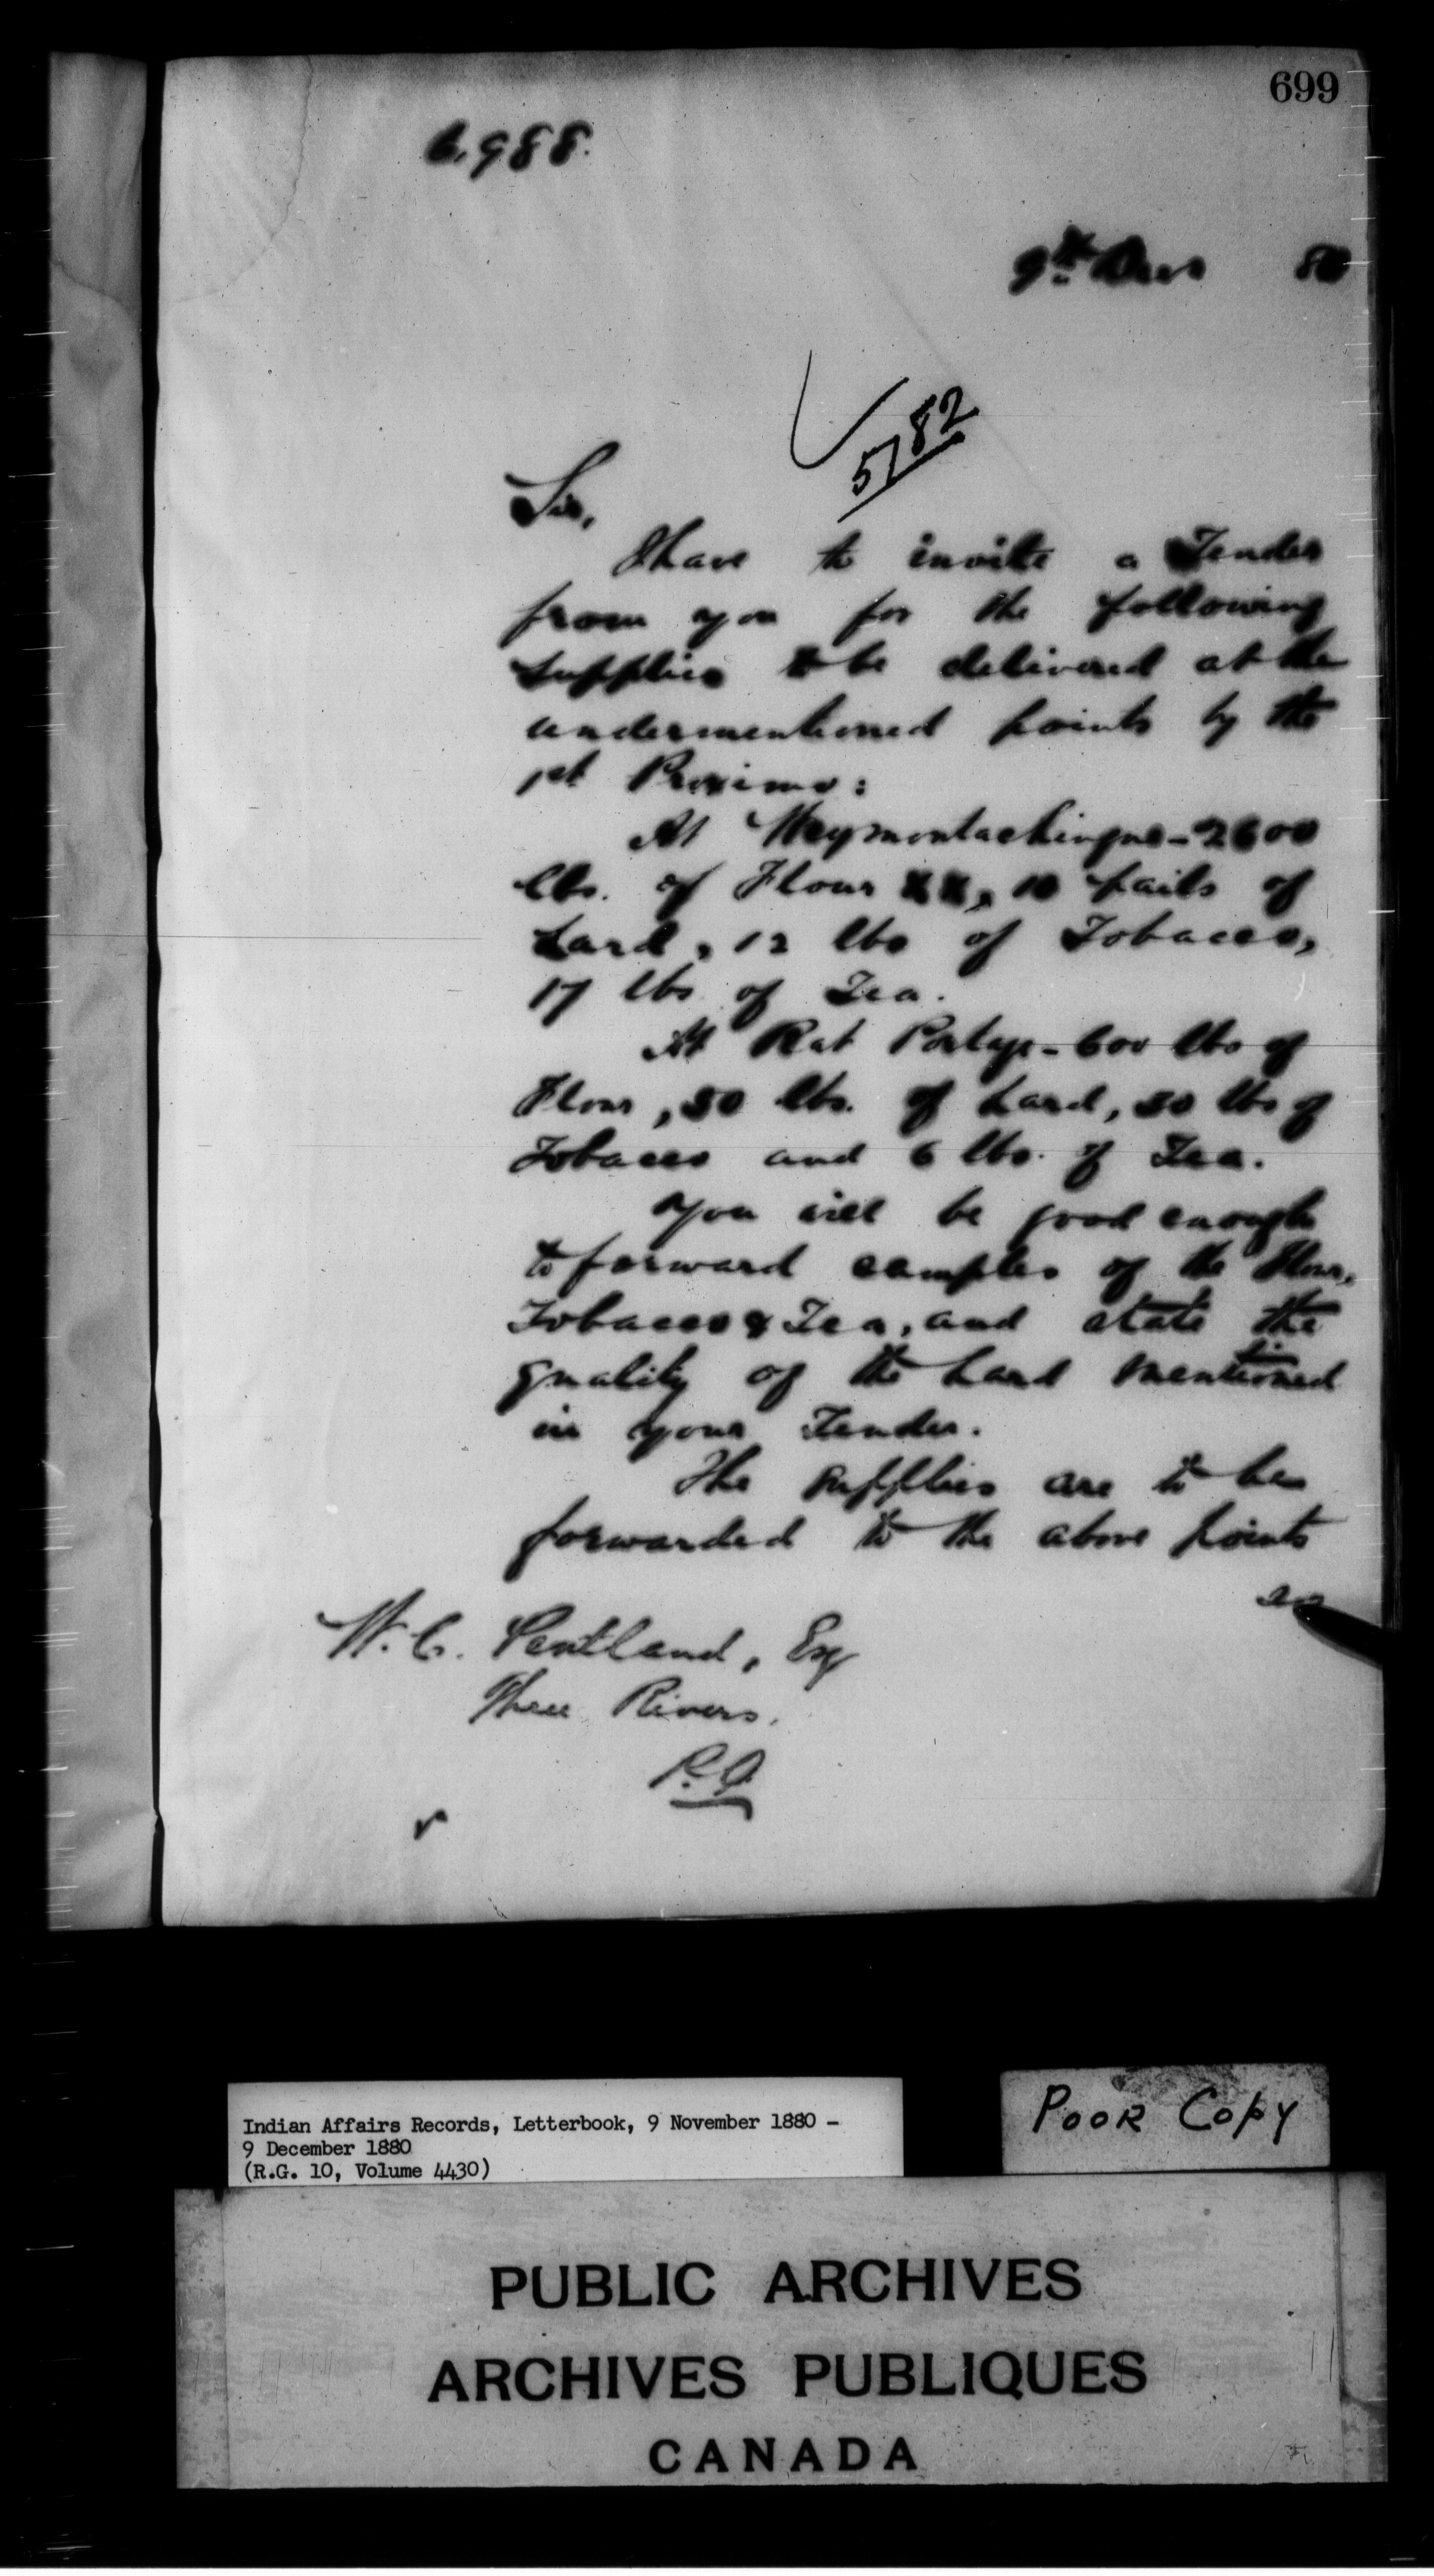 699
6,988.
9th Decr 80
5782
Sir,
I have to invite a Tender
from you for the following
supplies to be delivered at the
undermentioned points by the
1st Proximo:
At Weymontachingue - 2600
lbs. of Flour XX, 10 pails of
Lard, 12 lbs of Tobacco,
17 lbs of Tea.
At Rat Portage - 600 lbs of
Flour, 50 lbs. of Lard, 30 lbs of
Tobacco and 6 lbs. of Tea.
You will be good enough
to forward samples of the Flour,
Tobacco & Tea, and state the
quality of the Lard mentioned
in your Tender.
The supplies are to be
forwarded to the above points
W. C. Pentland, Esq
Three Rivers.
P.Q.
Indian Affairs Records, Letterbook, 9 November 1880 -
9 December 1880
(R.G. 10, Volume 4430)
POOR COPY
PUBLIC ARCHIVES
ARCHIVES PUBLIQUES
CANADA